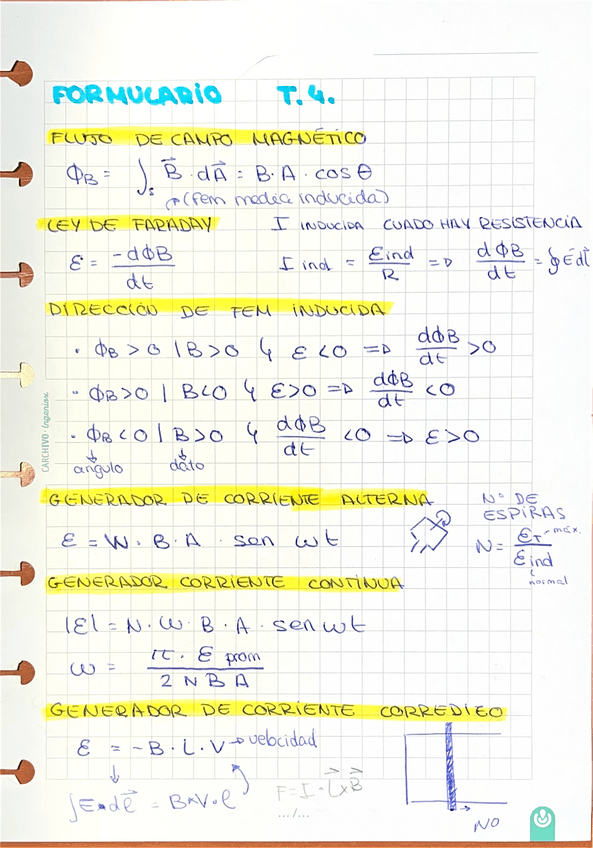 FORMULARIO T.4.
FLUJO DE CAMPO MAGNÉTICO
ΦB = ∫s B⃗ · dA⃗ = B · A · cos θ
↗(fem media inducida)
LEY DE FARADAY I INDUCIDA CUADO HAY RESISTENCIA
ε = -dΦB / dt I ind = εind / R => dΦB / dt = ∮E⃗dl⃗
DIRECCIÓN DE FEM INDUCIDA
· ΦB > 0 | B > 0 ↳ ε < 0 => dΦB / dt > 0
· ΦB > 0 | B < 0 ↳ ε > 0 => dΦB / dt < 0
· ΦB < 0 | B > 0 ↳ dΦB / dt < 0 => ε > 0
↓ ángulo ↓ dato
CARCHIVO
GENERADOR DE CORRIENTE ALTERNA
Nº DE
ESPIRAS
ε = W · B · A · sen ωt
N = εT máx. / εind
normal
GENERADOR CORRIENTE CONTÍNUA
|ε| = N · ω · B · A · sen ωt
ω = π · ε prom / 2 N B A
GENERADOR DE CORRIENTE CORREDIEO
ε = -B · L · V → velocidad
↓
∫E · dl⃗ = B · V · l F = I · L⃗ x B⃗
.../...
NO